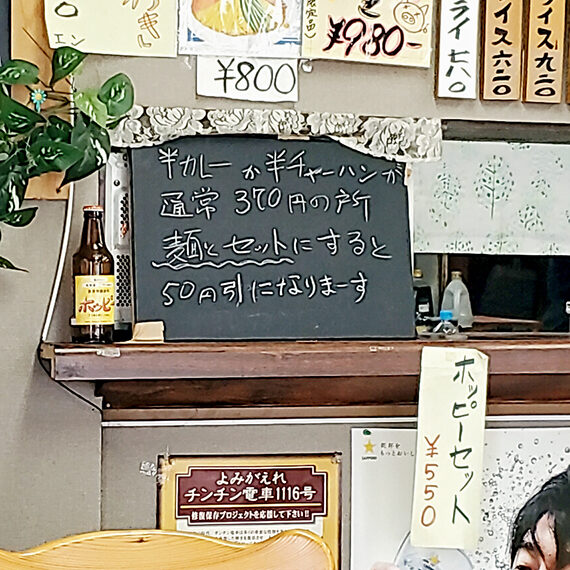 エン
¥800
¥980-
ライ 七八〇
イス 六二〇
イス 九二〇
半カレーか半チャーハンが
通常 370円の所
麺とセットにすると
50円引になりまーす
ホッピー
ホッピーセット
¥550
SAPPORO
乾杯を
もっとおいし
よみがえれ
チンチン電車1116号
修復保存プロジェクトを応援して下さい!!